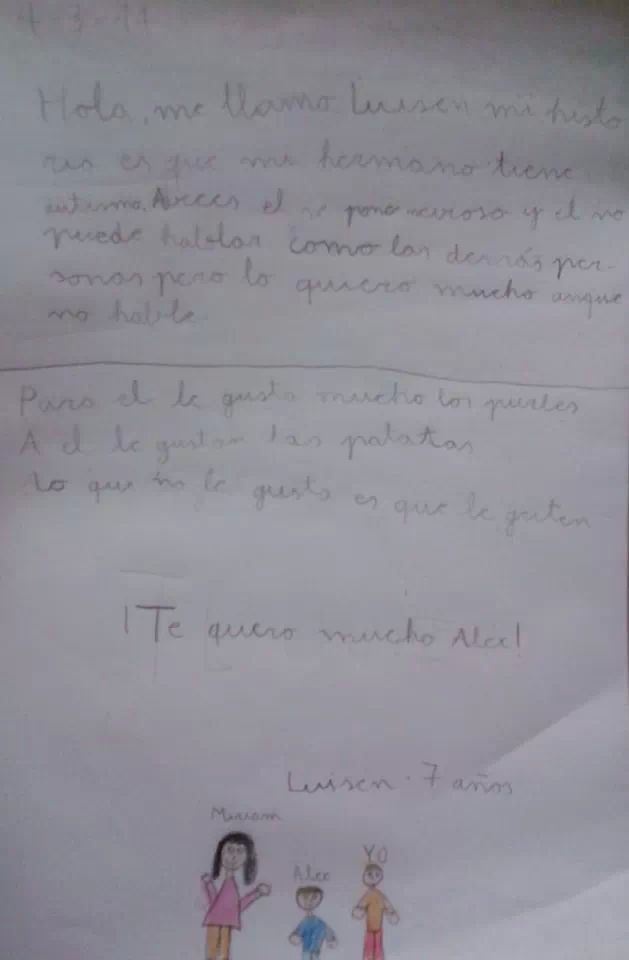 4-3-14
Hola, me llamo Luisen mi histo
ria es que mi hermano tiene
autismo. Aveces el se pone nervioso y el no
puede hablar como las demás per-
sonas pero lo quiero mucho anque
no hable.
Para el le gusta mucho los puzles
A el le gustan las patatas
Lo que no le gusta es que le griten
¡Te quero mucho Alex!
Luisen · 7 años
Miriam
Alex
YO